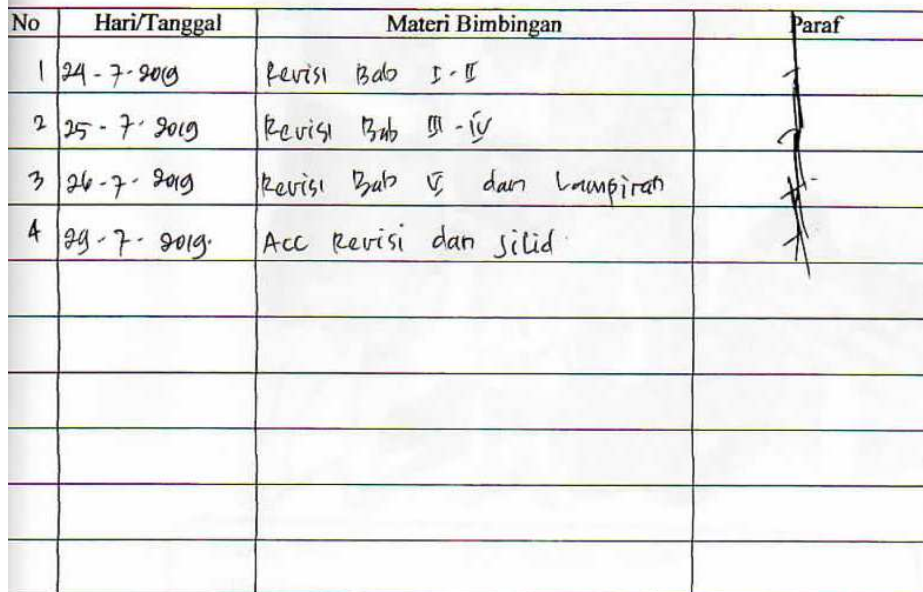 No Hari/Tanggal Materi Bimbingan Paraf
1 24-7-2019 Revisi Bab I-II
2 25-7-2019 Revisi Bab III-IV
3 26-7-2019 Revisi Bab V dan Lampiran
4 29-7-2019. Acc Revisi dan jilid.